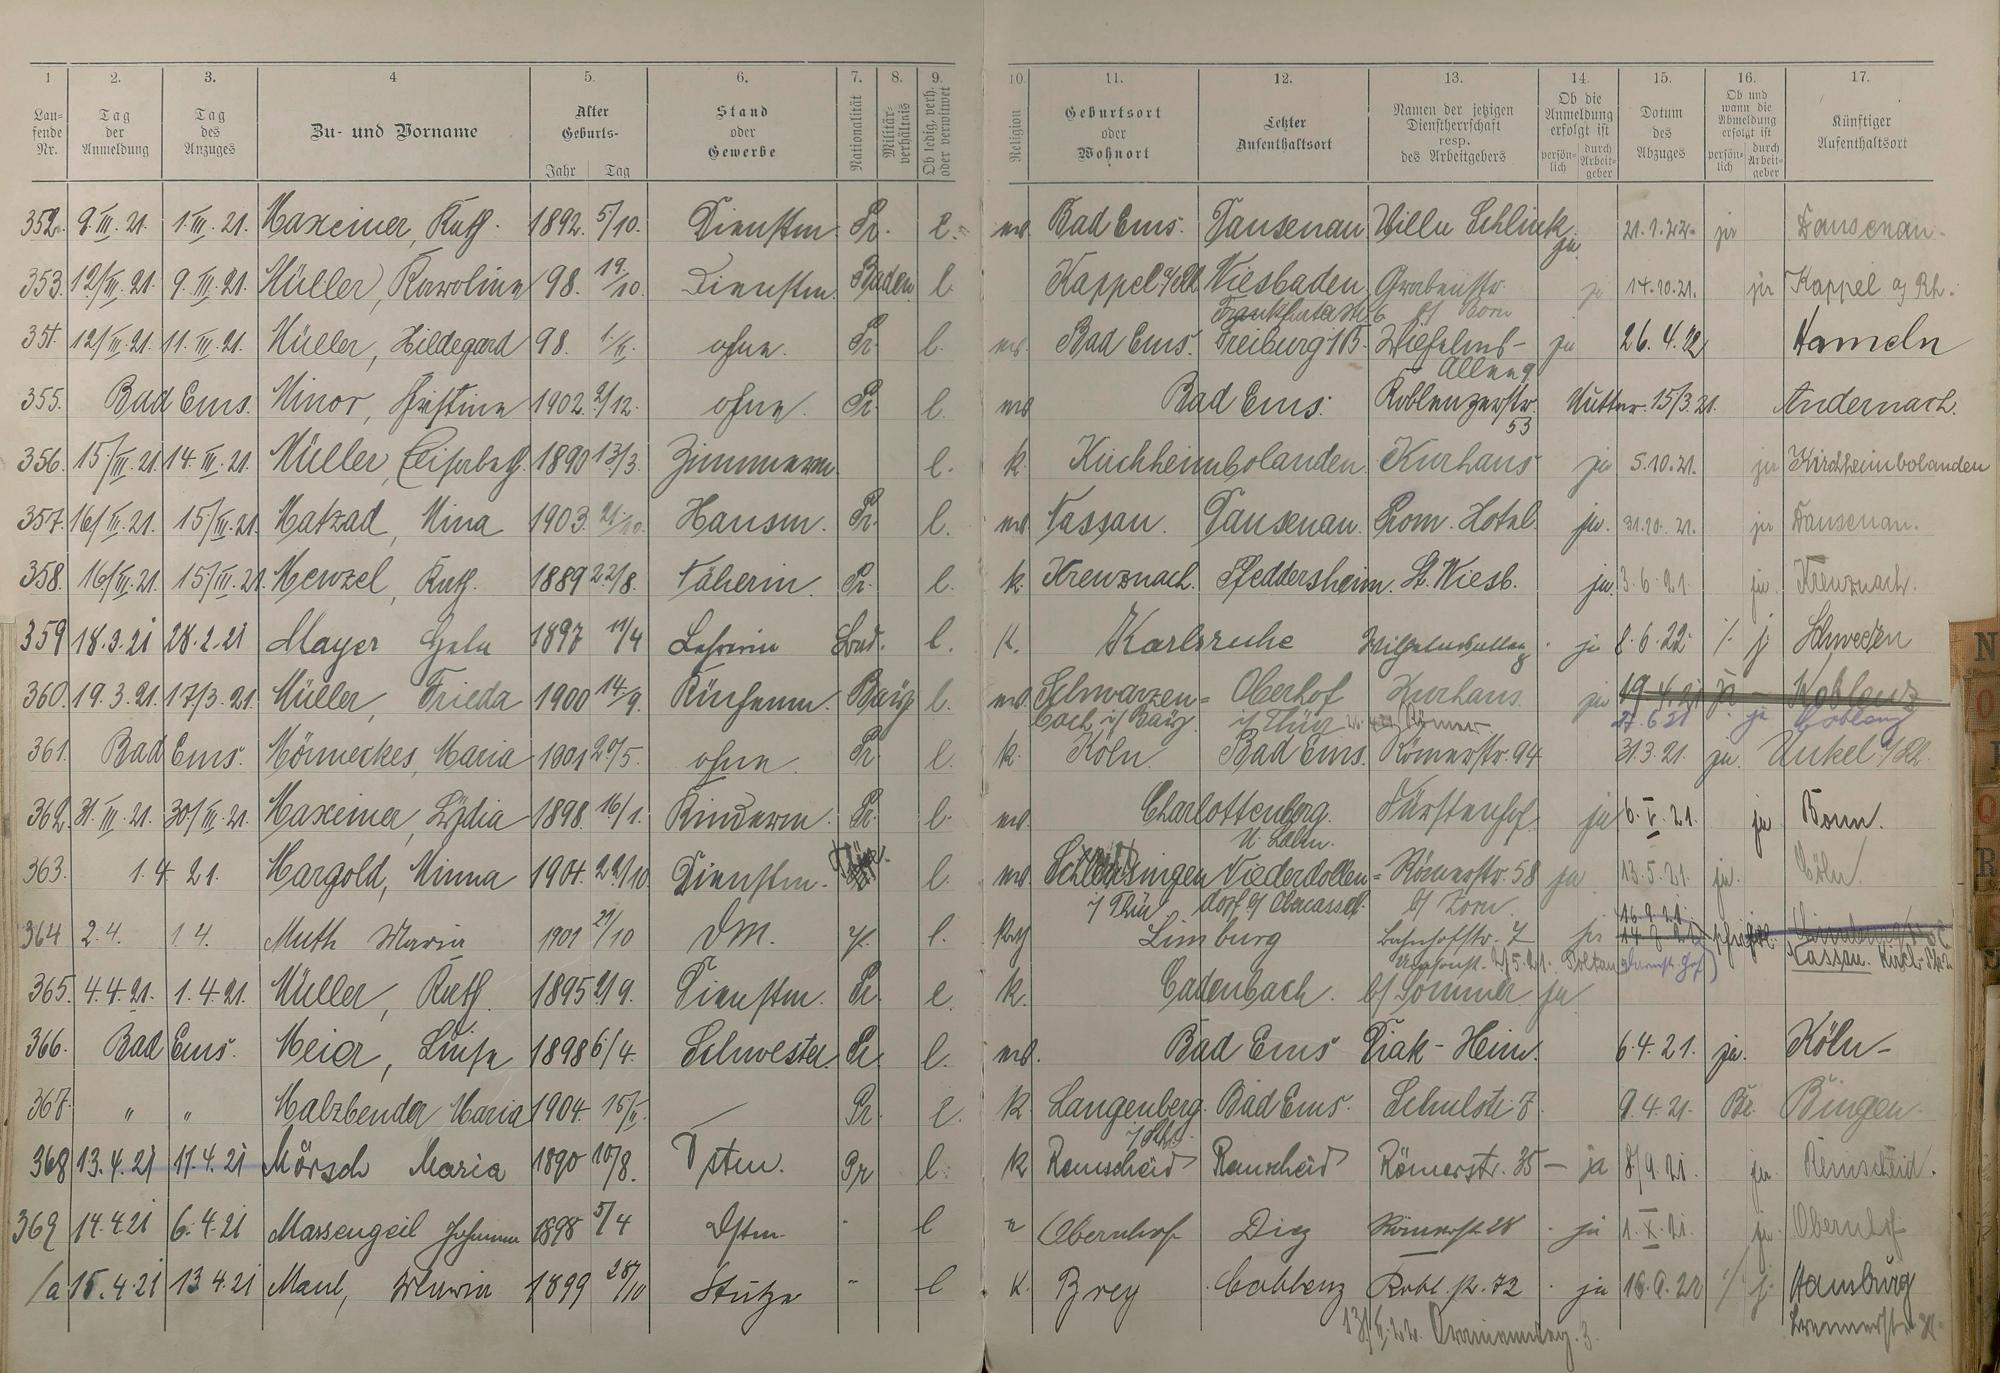 1 2. 3. 4 5. 6. 7. 8. 9. 10 11. 12. 13. 14. 15. 16. 17.
Lau-fende Nr. Tag der Anmeldung Tag des Anzuges Zu- und Vorname Alter Geburts- Jahr Tag Stand oder Gewerbe Nationalität Militär-verhältnis Ob ledig, verh. oder verwitwet Religion Geburtsort oder Wohnort Letzter Aufenthaltsort Namen der jetzigen Dienstherrschaft resp. des Arbeitgebers Ob die Anmeldung erfolgt ist persön-lich durch Arbeit-geber Datum des Abzuges Ob und wann die Abmeldung erfolgt ist persön-lich durch Arbeit-geber Künftiger Aufenthaltsort
352. 9. III. 21. 1. III. 21. Maxeiner, Kath. 1892. 5/10. Dienstm. Pr. l. ev. Bad Ems. Dausenau Villa Schlink ja 21.1.22. ja Dausenau.
353. 12/III. 21. 9. III. 21. Müller, Karoline 98. 19./10. Dienstm. Baden l. Kappel a/Rh. Wiesbaden Grabenstr. ja 14.10.21. ja Kappel a/Rh.
b/ Born
354. 12/III. 21. 11. III. 21. Müller, Hildegard 98. ohne. Pr. l. ev. Bad Ems. Freiburg i/B. Wilhelms-Allee 9 ja 26.4.22 Hameln
355. Bad Ems. Minor, Christine 1902. 2/12. ohne. Pr. l. ev. Bad Ems. Koblenzerstr. 53 Mutter. 15/3.21. Andernach.
356. 15./III. 21. 14. III. 21. Müller, Elisabeth. 1890 13/3. Zimmerm. l. k. Kirchheimbolanden. Kurhaus ja 5.10.21. ja Kirchheimbolanden
357. 16/III. 21. 15./III. 21. Matzad, Mina 1903. 21/10. Hausm. Pr. l. ev. Nassau. Dausenau. Röm. Hotel ja. 31.10.21. ja Dausenau.
358. 16/III. 21. 15./III. 21. Menzel, Kath. 1889 22/8. Näherin. Pr. l. k. Kreuznach. Pfeddersheim. St. Wiesb. ja. 3.6.21. ja. Kreuznach.
359 18.3.21 28.2.21 Mayer Hela 1897 11/4 Lehrerin Bad. l. K. Karlsruhe Wilhelmsallee 8 ja 8.6.22 /. j. Schweden
360. 19.3.21. 17/3.21. Müller, Frieda 1900 14./9. Küchenm. Bayr. l. ev. Schwarzen= Oberhof Kurhaus. ja 19.4.21 ja Koblenz
bach i/ Bayr. i/ Thür Römer 27.6.21 ja Coblenz
361. Bad Ems. Mönnerkes, Maria 1901 20/5. ohne. Pr. l. k. Köln Bad Ems. Römerstr. 94 31.3.21. ja. Unkel a/Rh.
362. 31. III. 21. 30/III. 21. Maxeiner, Lydia 1898. 16/1. Kinderm. Pr. l. ev. Charlottenberg. Fürstenhof. ja 6. V. 21. ja Bonn.
U. Lahn.
363. 1.4.21. Margold, Minna 1904. 22/10 Dienstm. l. ev. Schleusingen Niederdollen= Römerstr. 58 ja 13.5.21. ja. Cöln.
i/ Thür dorf b/ Obercassel. b/ Born. 16.9.21.
364 2.4. 1.4. Muth Maria 1901 21/10 DM. l. Kath Limburg Bahnhofstr. 7 ja Nassau.
365. 4.4.21. 1.4.21. Müller, Kath. 1895 2/9. Dienstm. Pr. l. k. Cadenbach. b/ Sommer ja
366. Bad Ems. Meier, Luise 1898 6/4. Schwester Pr. l. ev. Bad Ems Diak-Heim. 6.4.21. ja. Köln-
367. " " Malzbender Maria 1904. — Pr. l. k. Langenberg. Bad Ems. Schulstr. 7. 9.4.21. Be. Bingen.
i/ Rhl.
368 13.4.21 11.4.21 Mörsch Maria 1890 10/8. Dstm. Pr l. k Remscheid Remscheid Römerstr. 35 — ja 8/9.21. ja. Remscheid.
369 14.4.21 6.4.21 Massengeil Johanna 1898 5/4 Dstm. " l " Obernhof Diez Römerstr. 28 ja 1. X. 21. ja. Obernhof
/a 15.4.21 13.4.21 Maul, 1899 28/10 Stütze " l k. Brey Coblenz Kobl. str. 72 ja 16.9.22 /. j. Hamburg